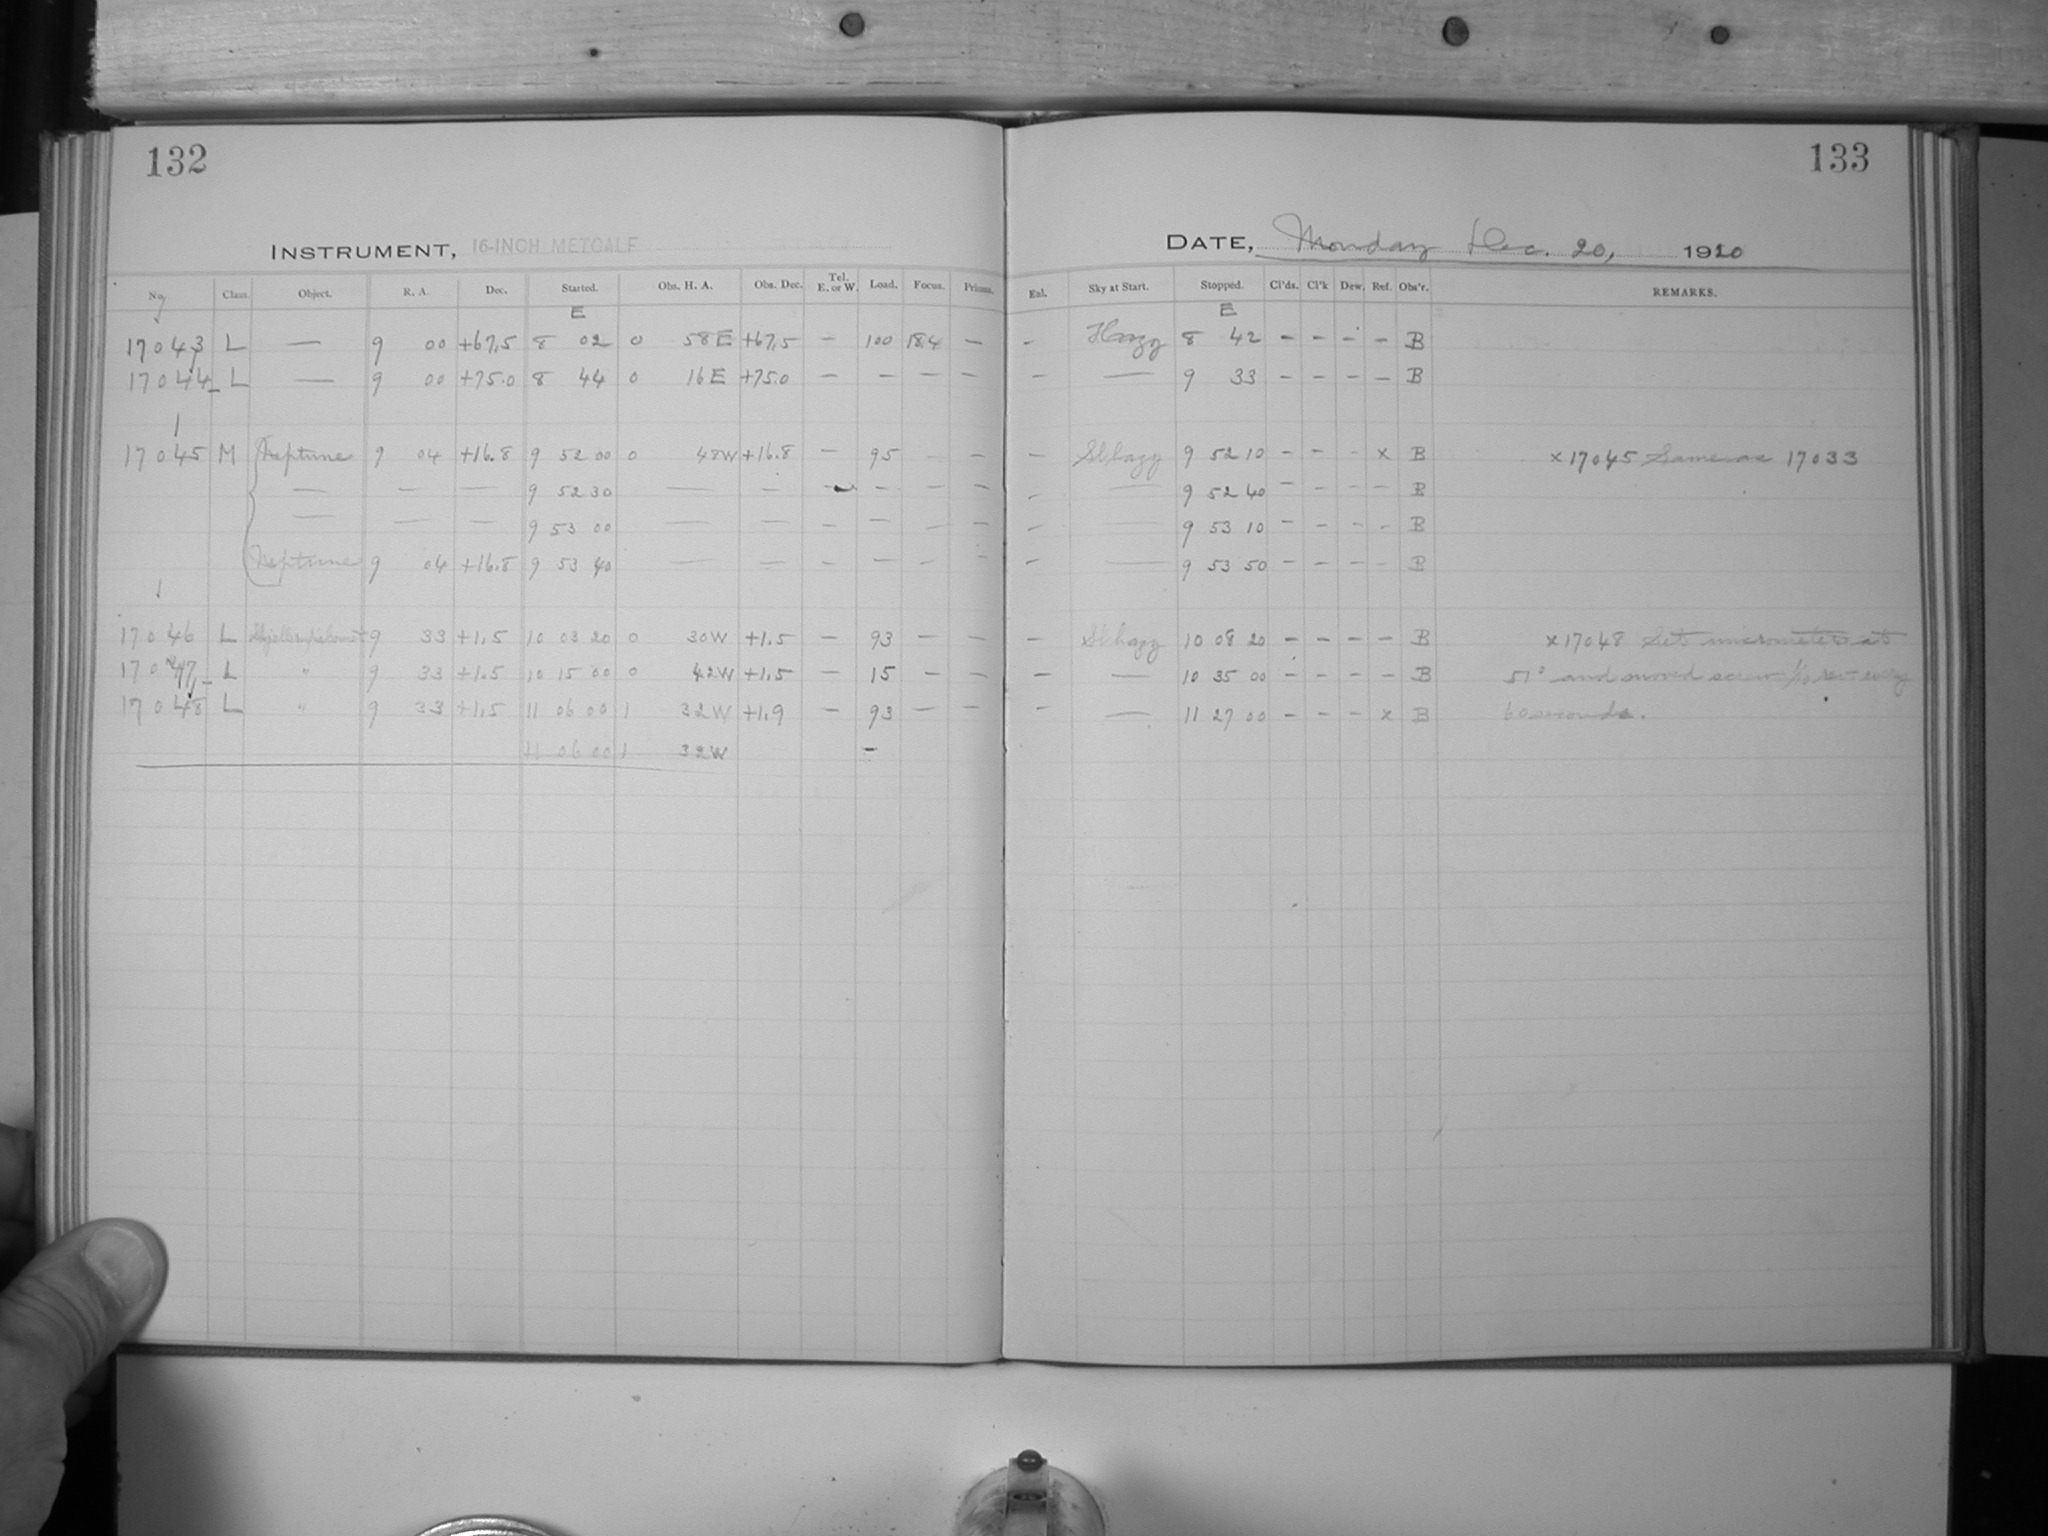 132
INSTRUMENT, 16-INCH METCALF
No. Class. Object. R. A. Dec. Started. Obs. H. A. Obs. Dec. Tel. E. or W. Load. Focus. Prisms.
E
17043 L — 9 00 +67.5 8 02 0 58E +67.5 — 100 18.4 —
17044 L — 9 00 +75.0 8 44 0 16E +75.0 — — — —
17045 M Neptune 9 04 +16.8 9 52 00 0 48W +16.8 — 95 — —
— — — 9 52 30 — — — — — —
— — — 9 53 00 — — — — — —
Neptune 9 04 +16.8 9 53 40 — — — — — —
17046 L Skjellerup's Comet 9 33 +1.5 10 03 20 0 30W +1.5 — 93 — —
17047 L " 9 33 +1.5 10 15 00 0 42W +1.5 — 15 — —
17048 L " 9 33 +1.5 11 06 00 1 32W +1.9 — 93 — —
11 06 00 1 32W —
133
DATE, Monday Dec. 20, 1920
Enl. Sky at Start. Stopped. Cl'ds. Cl'k Dew. Ref. Obs'r. REMARKS.
E
— Hazy 8 42 — — — — B
— — 9 33 — — — — B
— Sl hazy 9 52 10 — — — x B x 17045 Same as 17033
— — 9 52 40 — — — — B
— — 9 53 10 — — — — B
— — 9 53 50 — — — — B
— Sl hazy 10 08 20 — — — — B x 17048 Set micrometer at
— — 10 35 00 — — — — B 51° and moved screw 1/10 rev every
— — 11 27 00 — — — x B 60 seconds.